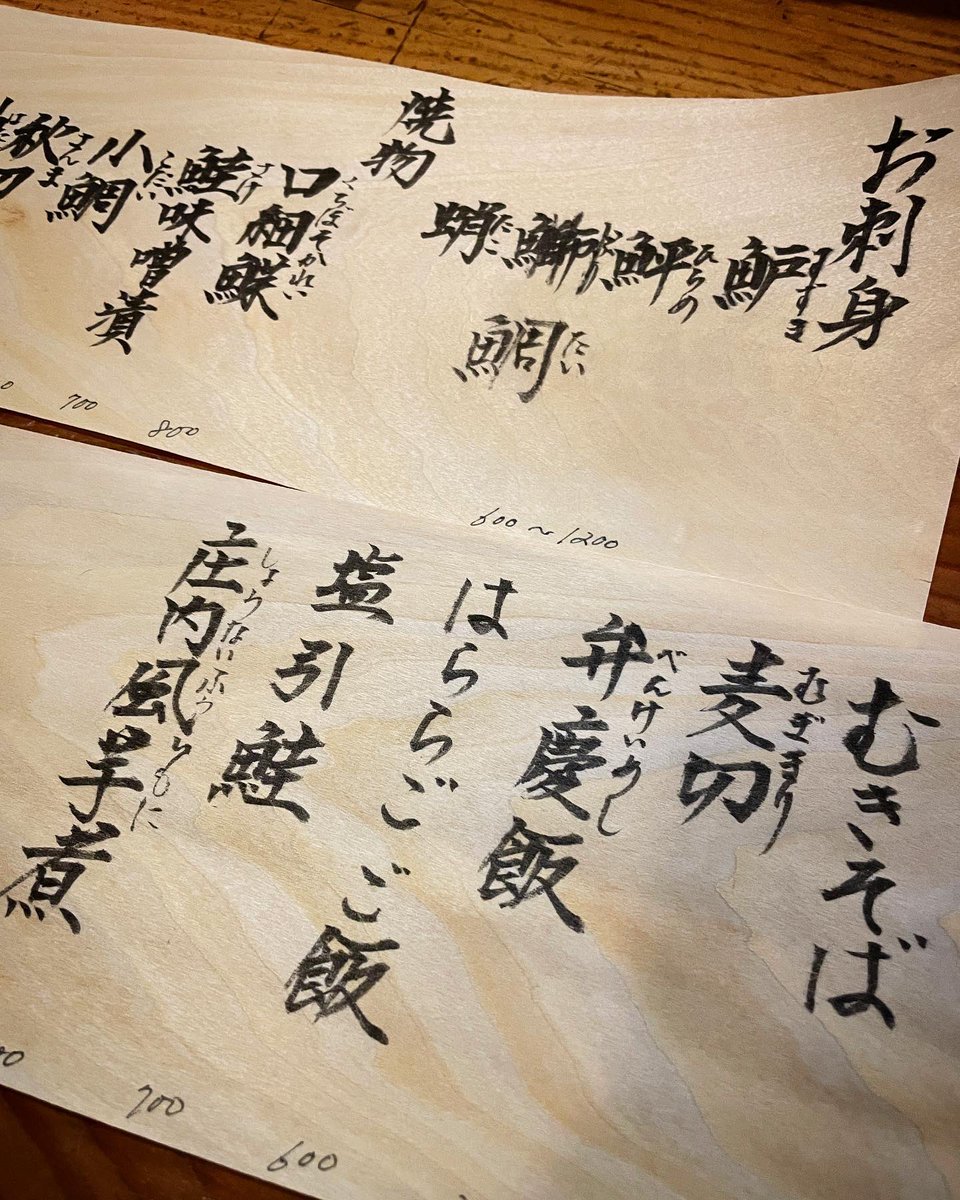 お刺身
魲
すずき
鮃
ひらめ
鰤
ぶり
蛸
たこ
鯛
たい
600～1200
焼物
口細鰈
くちぼそかれい
鮭味噌漬
さけ
小鯛
こだい
秋刀
さんま
800
700
むきそば
麦切
むぎきり
弁慶飯
べんけいめし
はららごご飯
塩引鮭
庄内風芋煮
しょうないふういもに
600
700